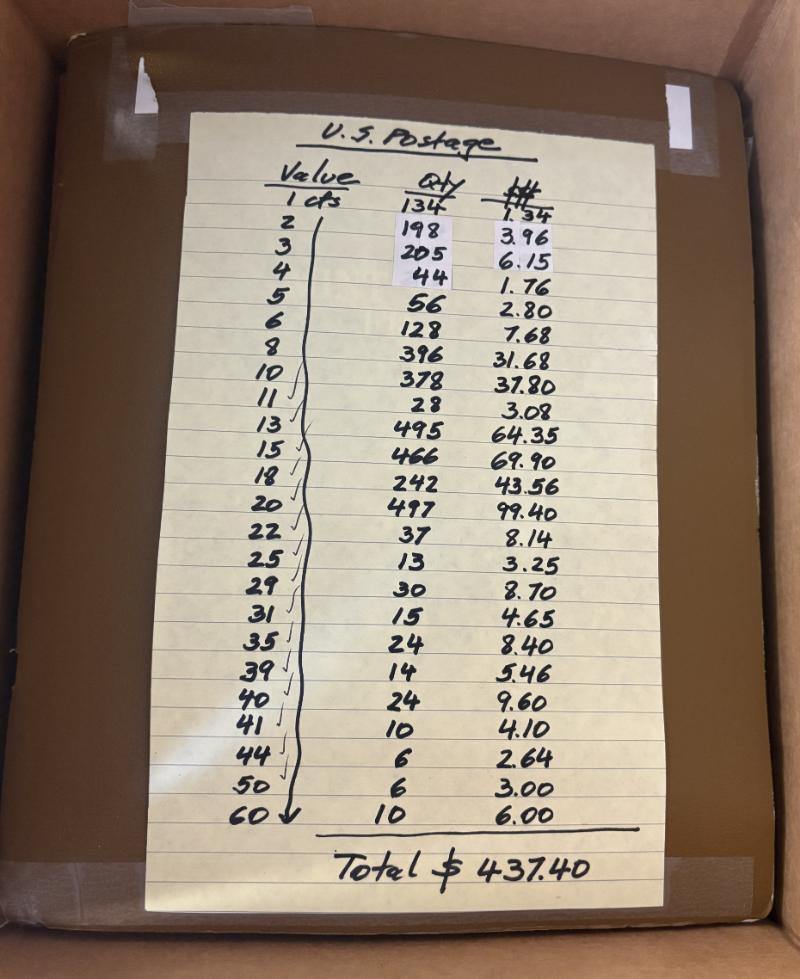 U.S. Postage
Value Qty
1 cts 134 1.34
2 198 3.96
3 205 6.15
4 44 1.76
5 56 2.80
6 128 7.68
8 396 31.68
10 378 37.80
11 28 3.08
13 495 64.35
15 466 69.90
18 242 43.56
20 497 99.40
22 37 8.14
25 13 3.25
29 30 8.70
31 15 4.65
35 24 8.40
39 14 5.46
40 24 9.60
41 10 4.10
44 6 2.64
50 6 3.00
60 10 6.00
Total $ 437.40